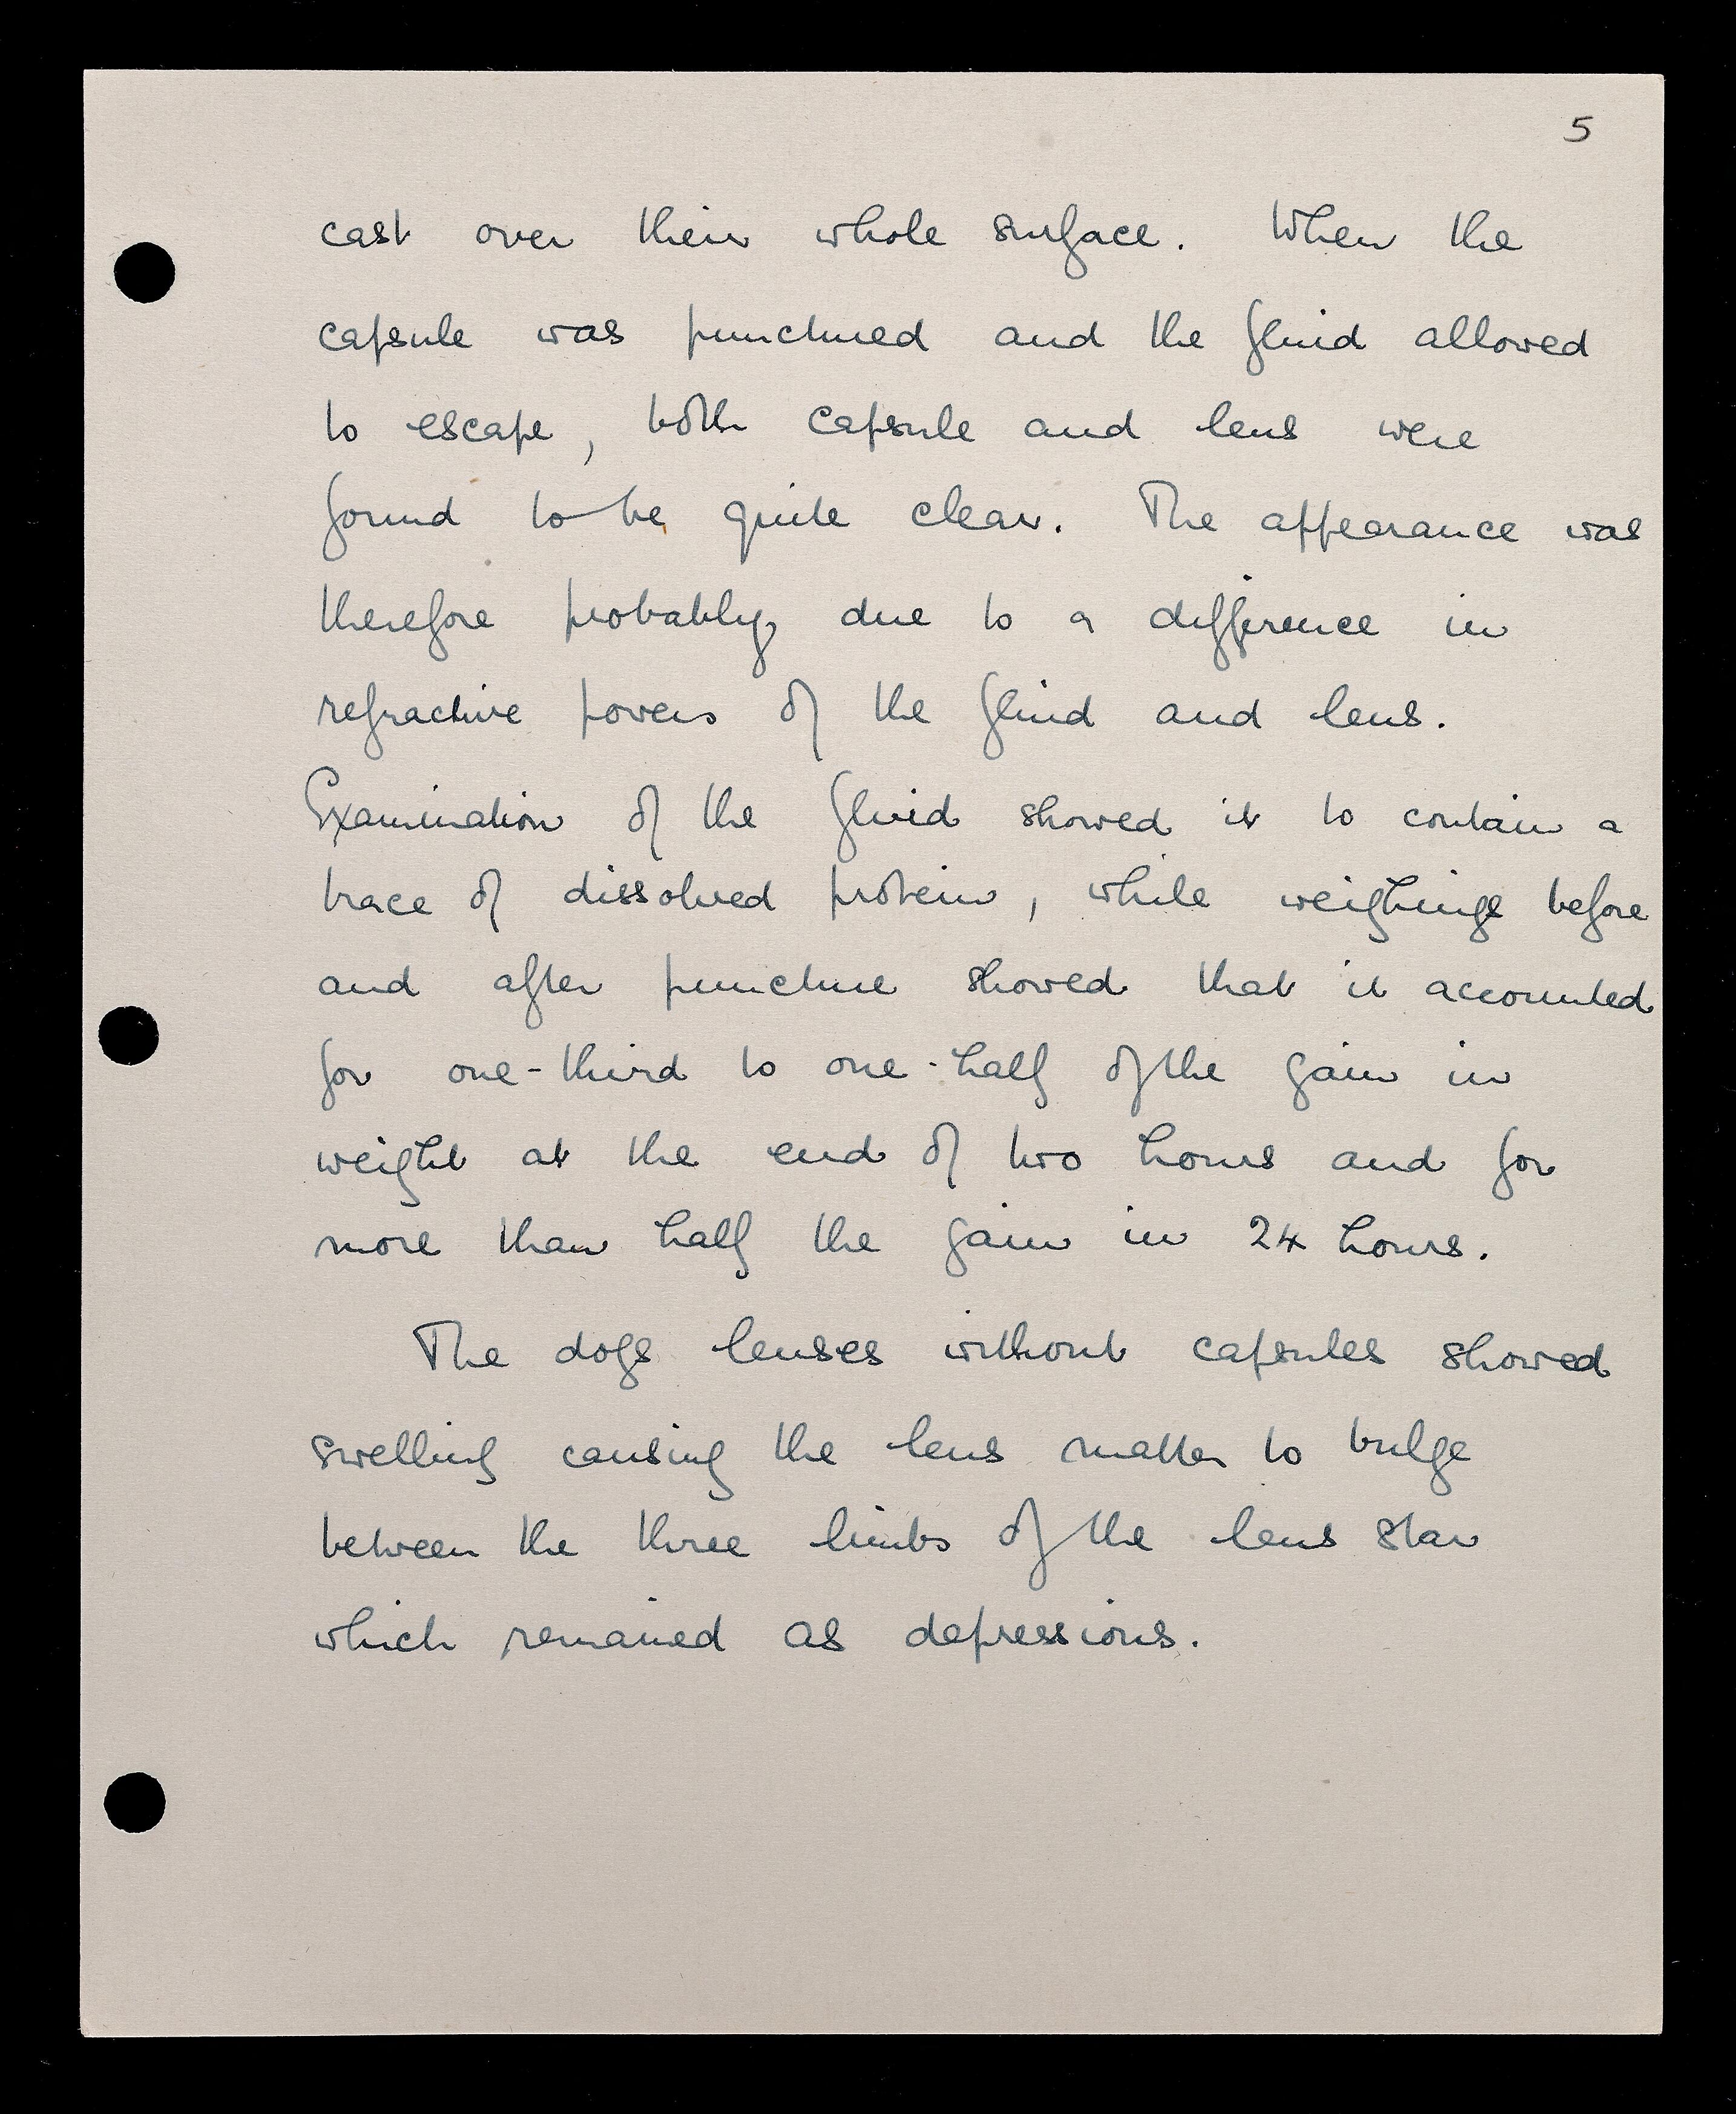 5
cast over their whole surface. When the
capsule was punctured and the fluid allowed
to escape, both capsule and lens were
found to be quite clear. The appearance was
therefore probably due to a difference in
refractive powers of the fluid and lens.
Examination of the fluid showed it to contain a
trace of dissolved protein, while weighings before
and after puncture showed that it accounted
for one-third to one-half of the gain in
weight at the end of two hours and for
more than half the gain in 24 hours.
The dogs lenses without capsules showed
swelling causing the lens matter to bulge
between the three limbs of the lens star
which remained as depressions.